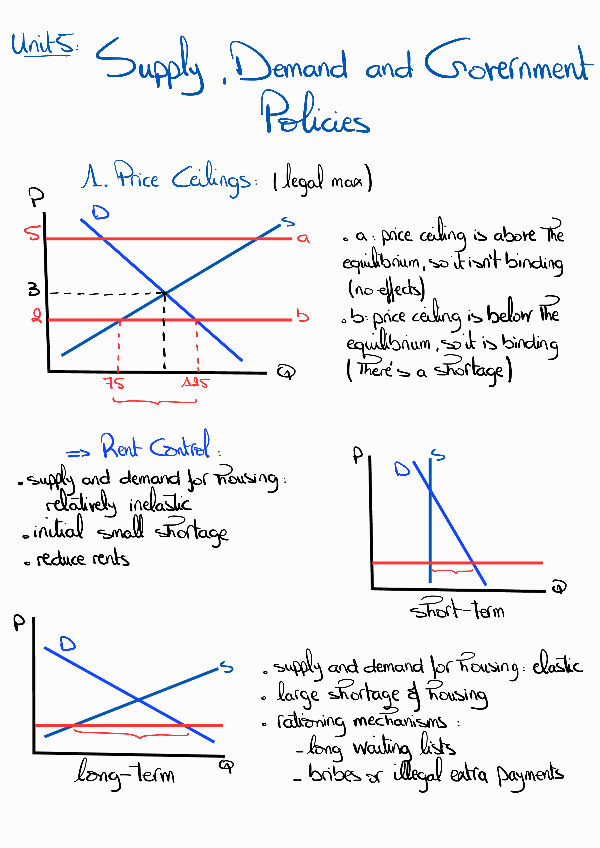 Unit 5:
Supply, Demand and Government
Policies
1. Price Ceilings: (legal max)
P
D
S
5
a
3
2
b
75
125
Q
. a: price ceiling is above the
equilibrium, so it isn't binding
(no effects)
. b: price ceiling is below the
equilibrium, so it is binding
(There's a shortage)
=> Rent Control:
. supply and demand for housing:
relatively inelastic
. initial small shortage
. reduce rents
P
D
S
Q
short-term
P
D
S
Q
long-term
. supply and demand for housing: elastic
. large shortage of housing
. rationing mechanisms:
- long waiting lists
- bribes or illegal extra payments